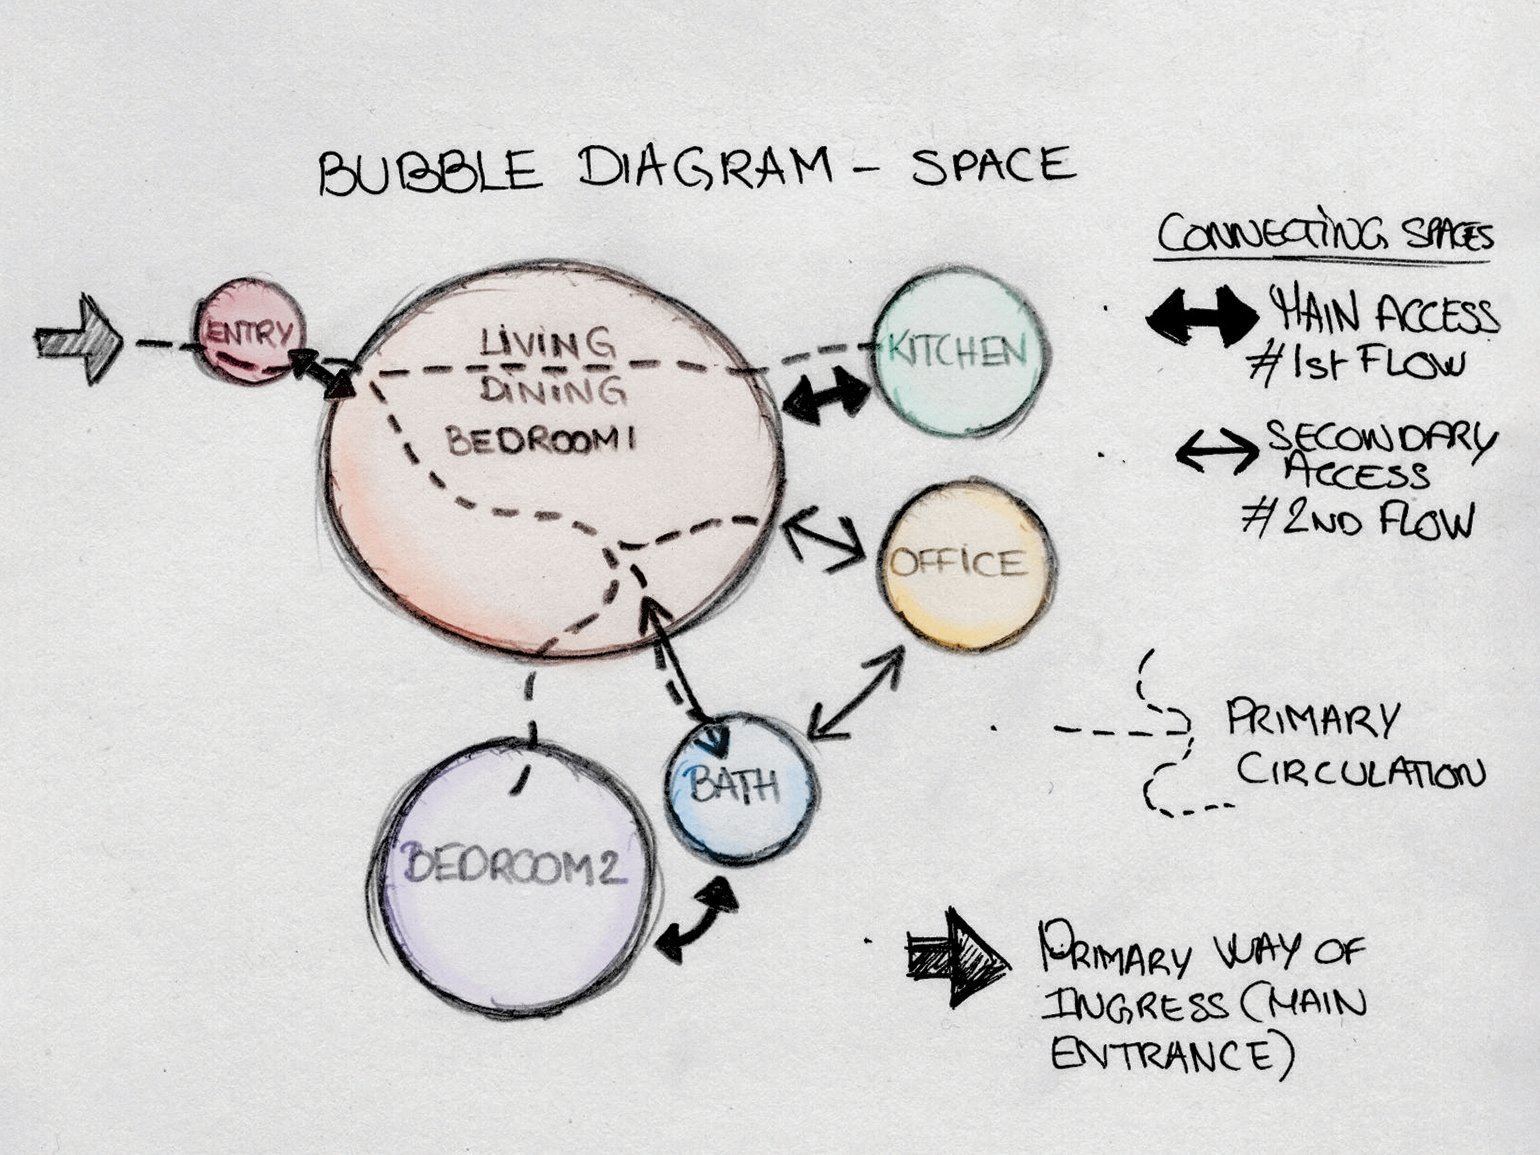 BUBBLE DIAGRAM - SPACE
CONNECTING SPACES
MAIN ACCESS
#1st FLOW
SECONDARY
ACCESS
#2ND FLOW
ENTRY
LIVING
DINING
BEDROOM1
KITCHEN
OFFICE
BATH
BEDROOM2
PRIMARY
CIRCULATION
PRIMARY WAY OF
INGRESS (MAIN
ENTRANCE)